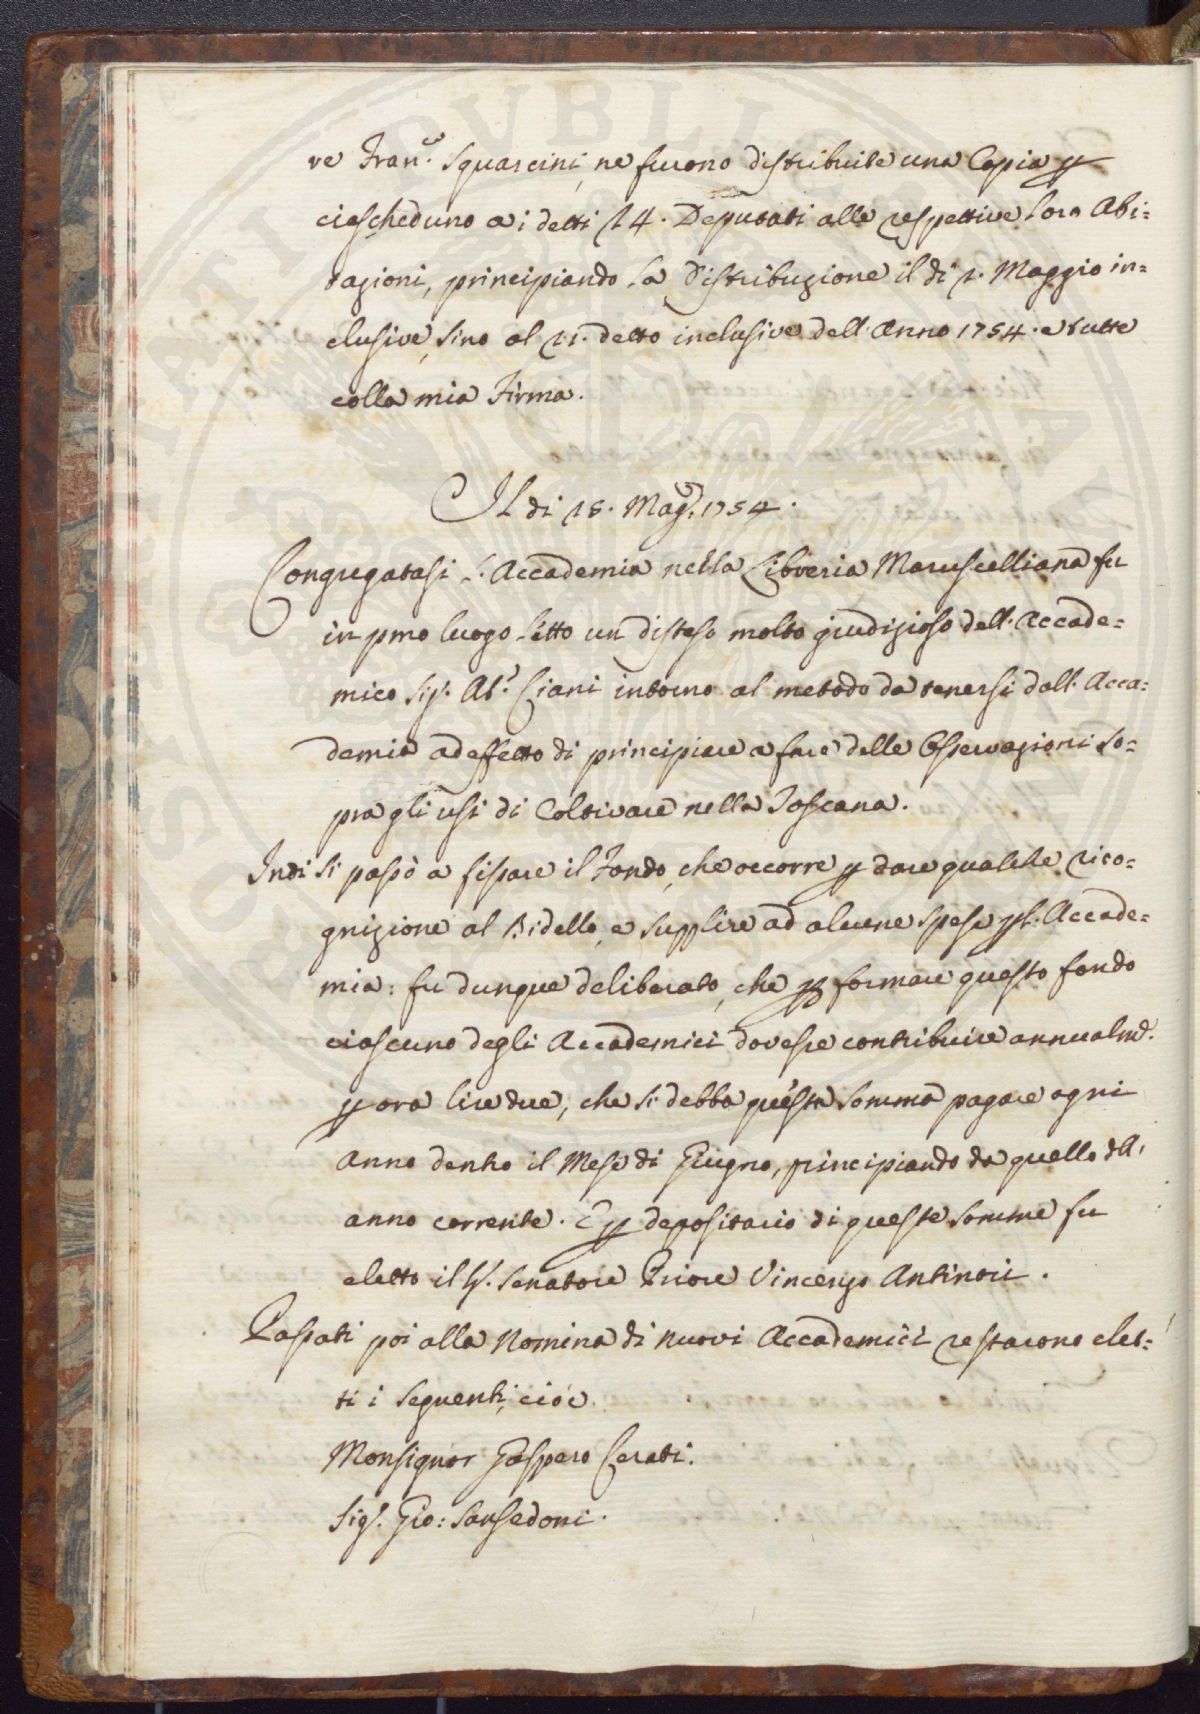 ve Fran.co Squarcini, ne furono distribuite una Copia p
ciascheduno a i detti 14. Deputati alle respettive loro Abi=
tazioni, principiando la Distribuzione il di 1. Maggio in=
clusive, sino al 11. detto inclusive dell' Anno 1754. e tutte
colla mia Firma.
Il di 15. Mag.o 1754.
Congregatasi l'Accademia nella Libreria Maruscelliana fu
in pmo luogo letto un disteso molto giudizioso dell' Accade=
mico Sig. Ab.e Ciani intorno al metodo da tenersi dall' Acca=
demia ad effetto di principiare a fare delle Osservazioni so=
pra gli usi di Coltivare nella Toscana.
Indi si passò a fissare il Fondo, che occorre p dare qualche rico=
gnizione al Bidello, e supplire ad alcune spese p l' Accade=
mia: fu dunque deliberato, che p formare questo fondo
ciascuno degli Accademici dovesse contribuire annualm.e
p ora lire due, che si debba questa somma pagare ogni
anno dentro il Mese di Giugno, principiando da quello dll'
anno corrente. E p depositario di queste somme fu
eletto il S. Senatore Priore Vincenzo Antinori.
Passati poi alla Nomina di nuovi Accademici restarono elet=
ti i seguenti, cioè
Monsignor Gaspero Cerati.
Sig. Gio: Sansedoni.